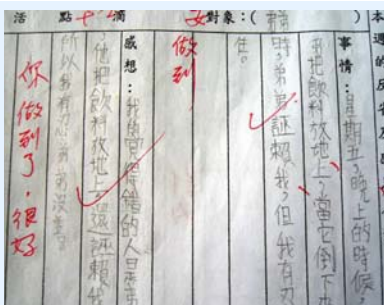 活 點 滿 對象:(
本週的反
事情:星期五,晚上的時候,
弟把飲料放地上,當它倒下
時,弟弟証賴我,但我有忍
住。
做到
感想:我的 錯的人是弟
,他把飲料放地上,還証賴我
所以我有忍弟弟沒生
你做到了,很好